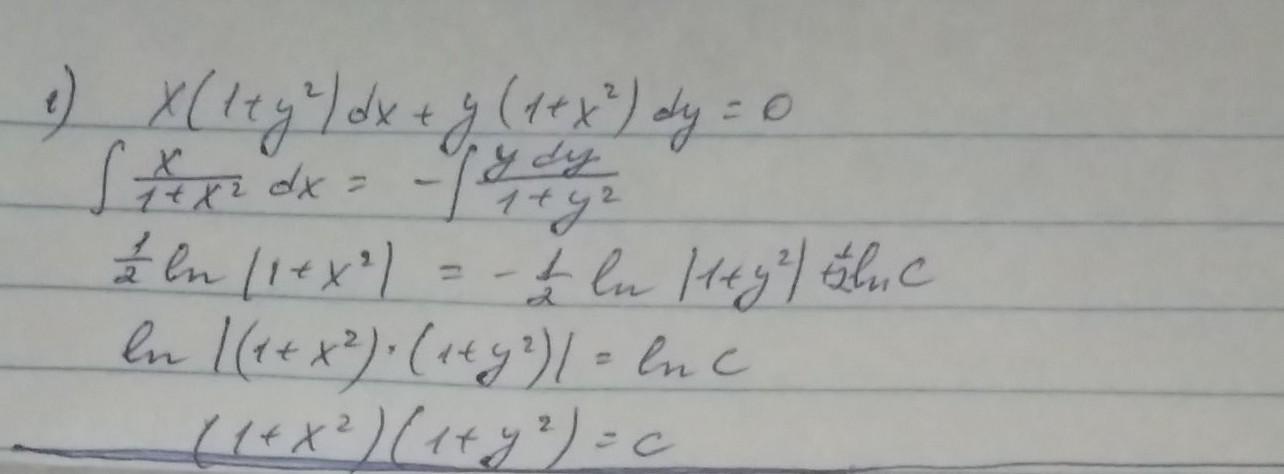 1) x(1+y²)dx + y(1+x²)dy = 0
∫ x/(1+x²) dx = -∫ y dy/(1+y²)
1/2 ln|1+x²| = -1/2 ln|1+y²| + 1/2 ln C
ln|(1+x²)·(1+y²)| = ln C
(1+x²)(1+y²) = C